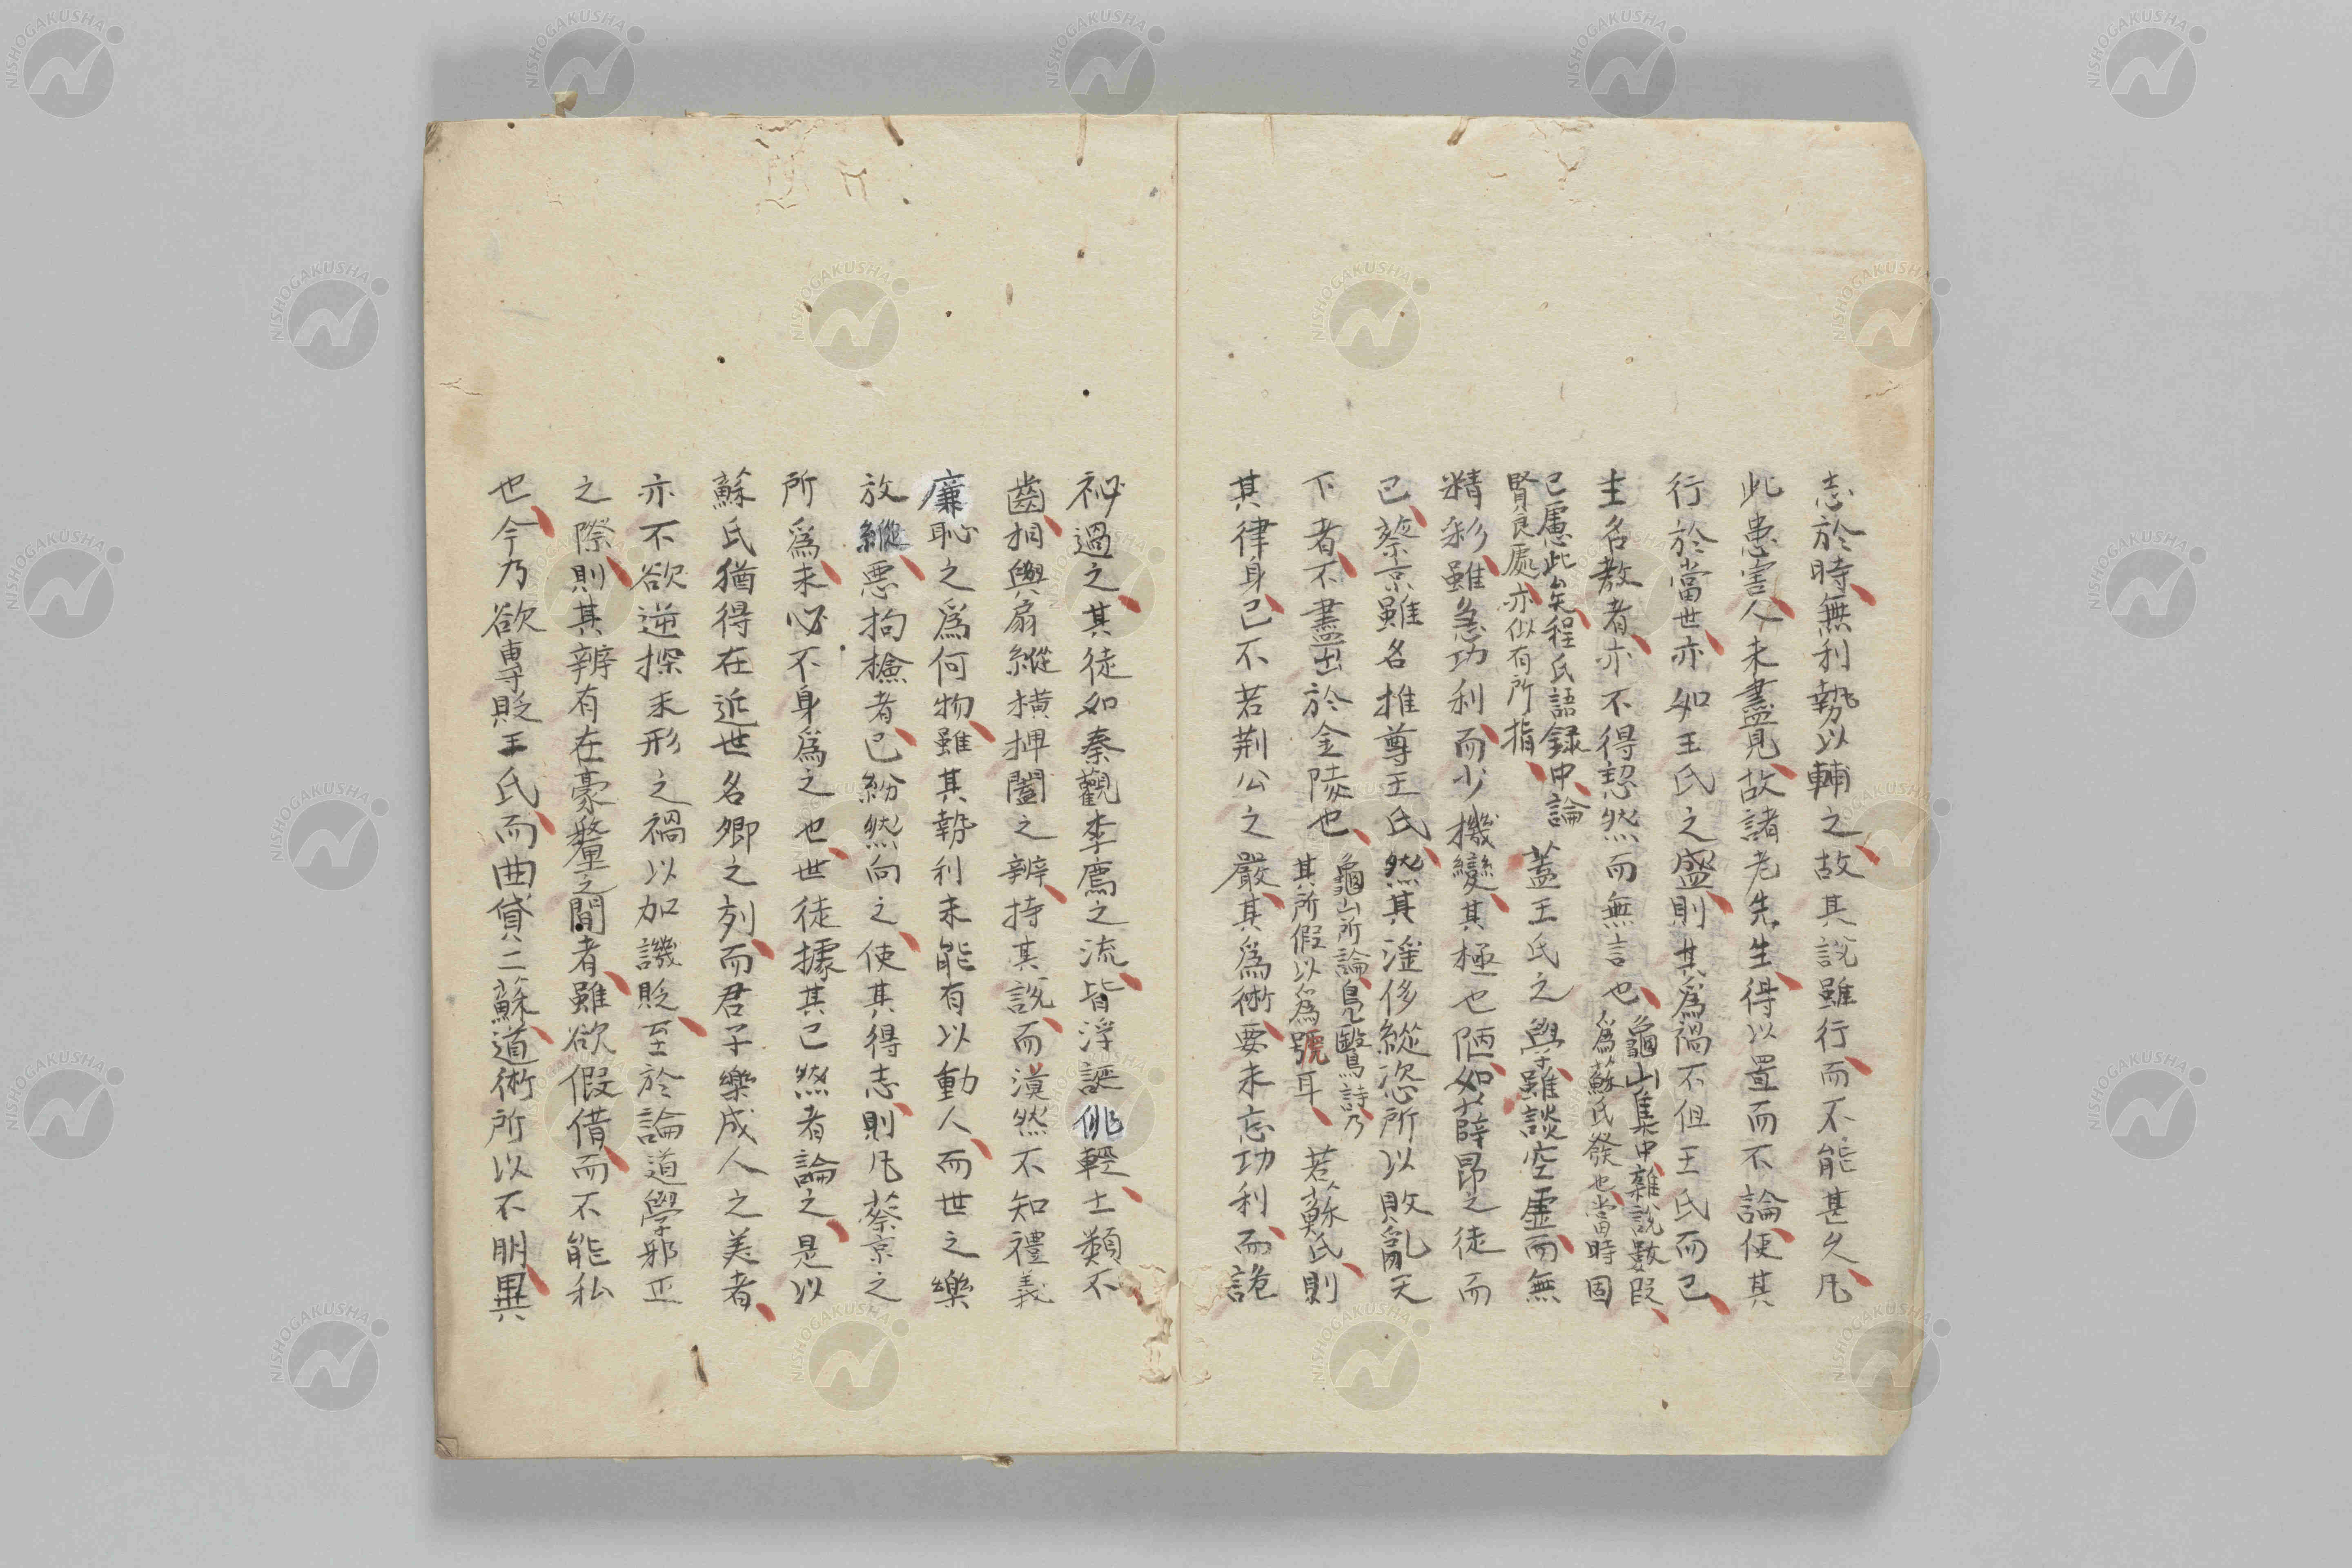 志於時無利勢以輔之故其説雖行而不能甚久凡
此患害人未盡見故諸老先生得以置而不論使其
行於當世亦如王氏之盛則其爲禍不但王氏而已
主名教者亦不得恝然而無言也龜山集中雜說數段
爲蘇氏發也當時固
已慮此矣程氏語録中論
賢良處亦似有所指
蓋王氏之學雖談空虚而無
精彩雖急功利而少機變其極也陋如薛昂之徒而
已蔡京雖名推尊王氏然其滛侈縱恣所以敗亂天
下者不盡出於金陵也龜山所論鳧鷖詩乃
其所假以爲號耳
若蘇氏則
其律身已不若荆公之嚴其爲術要未忘功利而詭
祕過之其徒如秦觀李廌之流皆浮誕佻輕士類不
齒相與扇縱横捭闔之辨持其説而漠然不知禮義
廉恥之爲何物雖其勢利未能有以動人而世之樂
放縱悪拘檢者已紛然向之使其得志則凡蔡京之
所爲未必不身爲之也世徒據其已然者論之是以
蘇氏猶得在近世名卿之列而君子樂成人之美者
亦不欲逆探未形之禍以加譏貶至於論道學邪正
之際則其辨有在豪釐之間者雖欲假借而不能私
也今乃欲專貶王氏而曲貸二蘇道術所以不明異